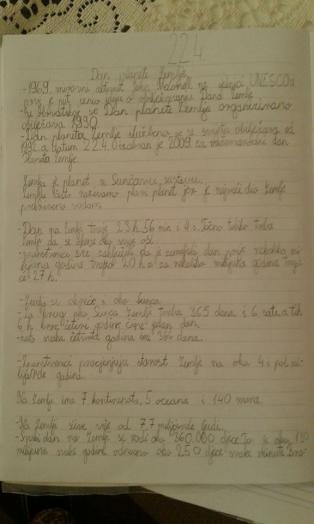 22.4
Dan planete Zemlje
-1969. mirovni aktivist John McConnel na sjednici UNESCOa
prvi je put iznio ideju o obilježavanju Dana Zemlje
se Dan planeta Zemlje organizirano
obilježava 1990.
-Dan planeta Zemlje službeno se u svijetu obilježava od
1992. a datum 22.4. je 2009. za međunarodni dan
planeta Zemlje.
Zemlja je planet u Sunčevu sustavu.
Zemlju često nazivamo plavi planet jer je najveći dio Zemlje
prekriven vodom.
-Dan na Zemlji traje 23 h 56 min i 4 s. Točno toliko treba
Zemlji da se okrene oko svoje osi.
-znanstvenici su zaključili da je zemaljski dan prije nekoliko mi-
lijuna godina trajao 20 h a za nekoliko milijuna godina traja
će 27 h.
-Zemlja se okreće i oko Sunca.
-Za krug oko Sunca Zemlji treba 365 dana i 6 sati a tih
6 h kroz četiri godine čine jedan dan.
-zato svaka četvrta godina ima 366 dana.
-Znanstvenici procjenjuju starost Zemlje na oko 4 i pol mi-
lijarde godina.
Na Zemlji ima 7 kontinenata, 5 oceana i 140 mora.
-Na Zemlji živi više od 7.7 milijardi ljudi.
-Svaki dan na Zemlji se rodi oko 360.000 djece to je oko 130
milijuna svake godine odnosno oko 250 djece svake minute